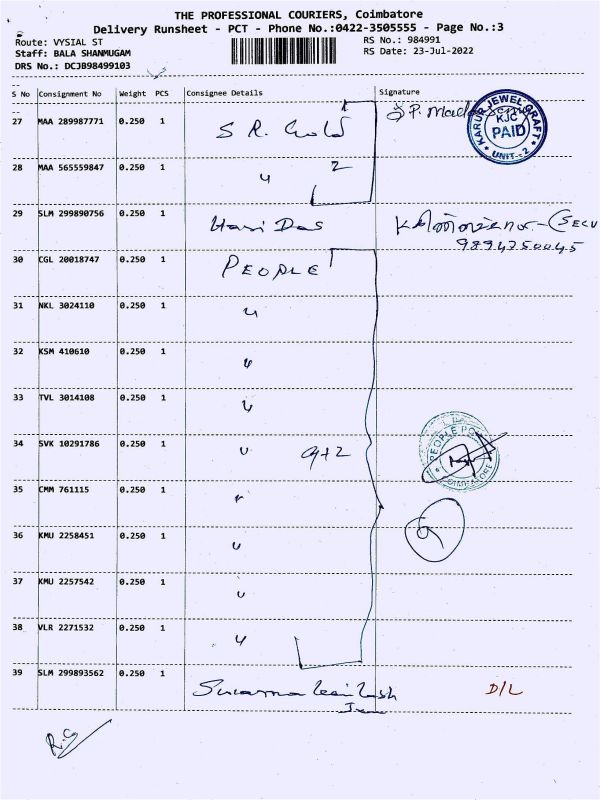 THE PROFESSIONAL COURIERS, Coimbatore
Delivery Runsheet - PCT - Phone No.:0422-3505555 - Page No.:3
Route: VYSIAL ST
RS No.: 984991
Staff: BALA SHANMUGAM
RS Date: 23-Jul-2022
DRS No.: DCJB98499103
S No Consignment No Weight PCS Consignee Details Signature
27 MAA 289987771 0.250 1 S R. Gold
KARUR JEWEL CRAFT
KJC
PAID
UNIT - 2
28 MAA 565559847 0.250 1 " 2
29 SLM 299890756 0.250 1 Hari Das
9894750045
30 CGL 20018747 0.250 1 PEOPLE
31 NKL 3024110 0.250 1 "
32 KSM 410610 0.250 1 "
33 TVL 3014108 0.250 1 "
34 SVK 10291786 0.250 1 " 9+2
PEOPLE
COIMBATORE
35 CMM 761115 0.250 1 "
36 KMU 2258451 0.250 1 "
9
37 KMU 2257542 0.250 1 "
38 VLR 2271532 0.250 1 "
39 SLM 299893562 0.250 1 D/L